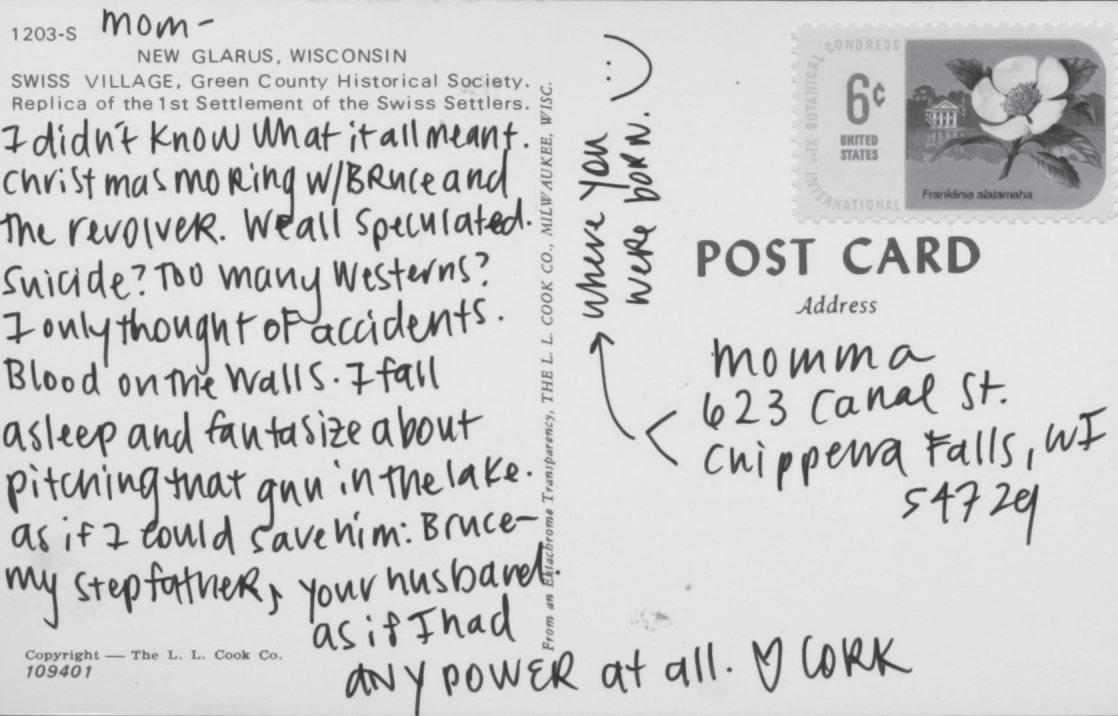 1203-S
mom-
NEW GLARUS, WISCONSIN
SWISS VILLAGE, Green County Historical Society.
Replica of the 1st Settlement of the Swiss Settlers.
I didn't know what it all meant.
Christmas moRing w/BRuce and
the revolveR. We all speculated.
Suicide? Too many Westerns?
I only thought of accidents.
Blood on the walls. I fall
asleep and fantasize about
pitching that gun in the lake.
as if I could save him: Bruce-
my stepfatheR, your husband.
as if I had
ANY POWER at all. ♡ CORK
Copyright — The L. L. Cook Co.
109401
From an Ektachrome Transparency, THE L. L. COOK CO., MILWAUKEE, WISC.
where you
were boRN. :)
XI INTERNATIONAL BOTANICAL CONGRESS
6¢
UNITED
STATES
Franklinia alatamaha
POST CARD
Address
momma
623 Canal St.
Chippewa Falls, WI
54729